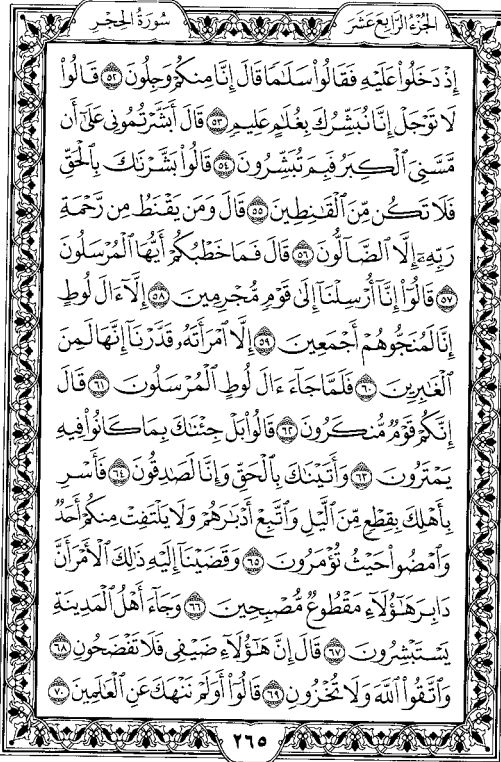 الجزء الرابع عشر
سورة الحجر
إِذْ دَخَلُوا۟ عَلَيْهِ فَقَالُوا۟ سَلَـٰمًا قَالَ إِنَّا مِنكُمْ وَجِلُونَ ٥٢ قَالُوا۟
لَا تَوْجَلْ إِنَّا نُبَشِّرُكَ بِغُلَـٰمٍ عَلِيمٍ ٥٣ قَالَ أَبَشَّرْتُمُونِى عَلَىٰٓ أَن
مَّسَّنِىَ ٱلْكِبَرُ فَبِمَ تُبَشِّرُونَ ٥٤ قَالُوا۟ بَشَّرْنَـٰكَ بِٱلْحَقِّ
فَلَا تَكُن مِّنَ ٱلْقَـٰنِطِينَ ٥٥ قَالَ وَمَن يَقْنَطُ مِن رَّحْمَةِ
رَبِّهِۦٓ إِلَّا ٱلضَّآلُّونَ ٥٦ قَالَ فَمَا خَطْبُكُمْ أَيُّهَا ٱلْمُرْسَلُونَ
٥٧ قَالُوٓا۟ إِنَّآ أُرْسِلْنَآ إِلَىٰ قَوْمٍ مُّجْرِمِينَ ٥٨ إِلَّآ ءَالَ لُوطٍ
إِنَّا لَمُنَجُّوهُمْ أَجْمَعِينَ ٥٩ إِلَّا ٱمْرَأَتَهُۥ قَدَّرْنَآ إِنَّهَا لَمِنَ
ٱلْغَـٰبِرِينَ ٦٠ فَلَمَّا جَآءَ ءَالَ لُوطٍ ٱلْمُرْسَلُونَ ٦١ قَالَ
إِنَّكُمْ قَوْمٌ مُّنكَرُونَ ٦٢ قَالُوا۟ بَلْ جِئْنَـٰكَ بِمَا كَانُوا۟ فِيهِ
يَمْتَرُونَ ٦٣ وَأَتَيْنَـٰكَ بِٱلْحَقِّ وَإِنَّا لَصَـٰدِقُونَ ٦٤ فَأَسْرِ
بِأَهْلِكَ بِقِطْعٍ مِّنَ ٱلَّيْلِ وَٱتَّبِعْ أَدْبَـٰرَهُمْ وَلَا يَلْتَفِتْ مِنكُمْ أَحَدٌ
وَٱمْضُوا۟ حَيْثُ تُؤْمَرُونَ ٦٥ وَقَضَيْنَآ إِلَيْهِ ذَٰلِكَ ٱلْأَمْرَ أَنَّ
دَابِرَ هَـٰٓؤُلَآءِ مَقْطُوعٌ مُّصْبِحِينَ ٦٦ وَجَآءَ أَهْلُ ٱلْمَدِينَةِ
يَسْتَبْشِرُونَ ٦٧ قَالَ إِنَّ هَـٰٓؤُلَآءِ ضَيْفِى فَلَا تَفْضَحُونِ ٦٨
وَٱتَّقُوا۟ ٱللَّهَ وَلَا تُخْزُونِ ٦٩ قَالُوٓا۟ أَوَلَمْ نَنْهَكَ عَنِ ٱلْعَـٰلَمِينَ ٧٠
٢٦٥